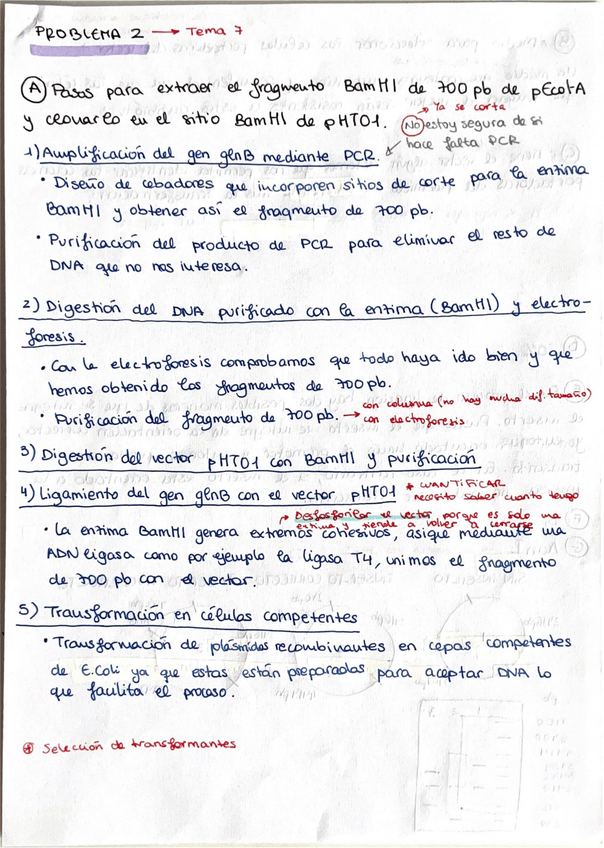 PROBLEMA 2 → Tema 7
Ⓐ Pasos para extraer el fragmento BamHI de 700 pb de pEcol-A
y clonarlo en el sitio BamHI de pHT01.
→ Ya se corta
No estoy segura de si
hace falta PCR
1) Amplificación del gen glnB mediante PCR.
· Diseño de cebadores que incorporen sitios de corte para la enzima
BamHI y obtener así el fragmento de 700 pb.
· Purificación del producto de PCR para eliminar el resto de
DNA que no nos interesa.
2) Digestión del DNA purificado con la enzima (BamHI) y electro-
foresis.
· Con la electroforesis comprobamos que todo haya ido bien y que
hemos obtenido los fragmentos de 700 pb.
· Purificación del fragmento de 700 pb. → con columna (no hay mucha dif. tamaño)
→ con electroforesis
3) Digestión del vector pHT01 con BamHI y purificación
4) Ligamiento del gen glnB con el vector pHT01 * CUANTIFICAR
necesito saber cuanto tengo
→ Desfosforilar el vector porque es solo una
enzima y tiende a volver a cerrarse
· La enzima BamHI genera extremos cohesivos, asique mediante una
ADN ligasa como por ejemplo la ligasa T4, unimos el fragmento
de 700 pb con el vector.
5) Transformación en células competentes
· Transformación de plásmidos recombinantes en cepas competentes
de E.Coli ya que estas están preparadas para aceptar DNA lo
que facilita el proceso.
⊕ Selección de transformantes